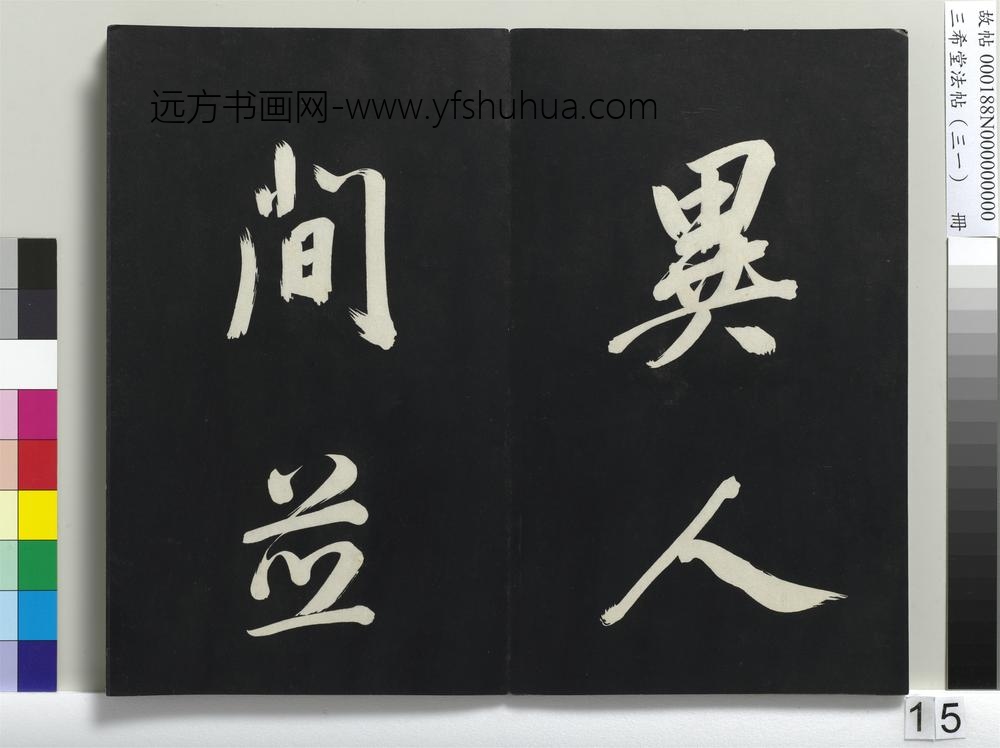 異人
間並
远方书画网-www.yfshuhua.com
故帖 000188N000000000
三希堂法帖(三一) 冊
15